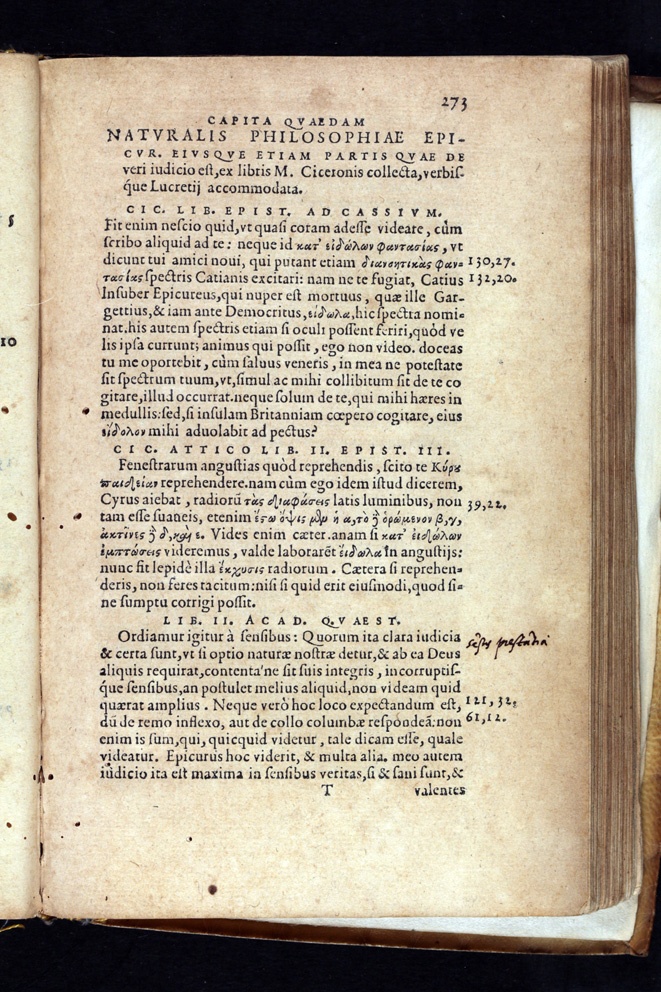 273
CAPITA QVAEDAM
NATVRALIS PHILOSOPHIAE EPI-
CVR. EIVSQVE ETIAM PARTIS QVAE DE
veri iudicio est, ex libris M. Ciceronis collecta, verbis-
q́ue Lucretij accommodata.
CIC. LIB. EPIST. AD CASSIVM.
Fit enim nescio quid, vt quasi coram adesse videare, cùm
scribo aliquid ad te: neque id κατ' εἰδώλων φαντασίας, vt
dicunt tui amici noui, qui putant etiam διανοητικὰς φαν- 130,27.
τασίας spectris Catianis excitari: nam ne te fugiat, Catius 132,20.
Insuber Epicureus, qui nuper est mortuus, quæ ille Gar-
gettius, & iam ante Democritus, εἴδωλα, hic spectra nomi-
nat. his autem spectris etiam si oculi possent feriri, quòd ve
lis ipsa currunt; animus qui possit, ego non video. doceas
tu me oportebit, cùm saluus veneris, in mea ne potestate
sit spectrum tuum, vt, simul ac mihi collibitum sit de te co
gitare, illud occurrat. neque solum de te, qui mihi hæres in
medullis: sed, si insulam Britanniam cœpero cogitare, eius
εἴδολον mihi aduolabit ad pectus?
CIC. ATTICO LIB. II. EPIST. III.
Fenestrarum angustias quòd reprehendis, scito te Κύρου
παιδείαν reprehendere. nam cùm ego idem istud dicerem,
Cyrus aiebat, radiorū τὰς διαφάσεις latis luminibus, non 39,22.
tam esse suaueis, etenim ἔστω ὄψις μὲν ἡ α, τὸ δὲ ὁρώμενον β, γ,
ἀκτῖνες δὲ δ, καὶ ε. Vides enim cæter. anam si κατ' εἰδώλων
ἐμπτώσεις videremus, valde laborarēt εἴδωλα in angustijs:
nunc fit lepidè illa ἔκχυσις radiorum. Cætera si reprehen-
deris, non feres tacitum: nisi si quid erit eiusmodi, quod si-
ne sumptu corrigi possit.
LIB. II. ACAD. QVAEST.
Ordiamur igitur à sensibus: Quorum ita clara iudicia
& certa sunt, vt si optio naturæ nostræ detur, & ab ea Deus
aliquis requirat, contenta'ne sit suis integris, incorruptis-
q́ue sensibus, an postulet melius aliquid, non videam quid
quærat amplius. Neque verò hoc loco expectandum est, 121, 32.
dū de remo inflexo, aut de collo columbæ respondeā: non 61,12.
enim is sum, qui, quicquid videtur, tale dicam esse, quale
videatur. Epicurus hoc viderit, & multa alia. meo autem
iudicio ita est maxima in sensibus veritas, si & sani sunt, &
T valentes